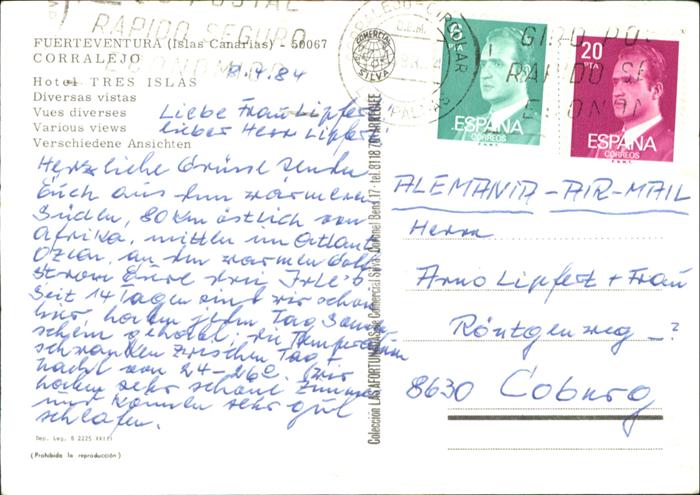 POSTAL
RAPIDO SEGURO
FUERTEVENTURA (Islas Canarias) - 50067
CORRALEJO
8.4.84
Hotel TRES ISLAS
Diversas vistas
Vues diverses
Various views
Verschiedene Ansichten
Liebe Frau Lipfert,
lieber Herr Lipfert!
Herzliche Grüsse senden
Euch aus dem warmeren
Süden, 80 km östlich von
Afrika, mitten im Atlant.
Ozean, an dem warmen Golf-
strom Eure drei
Seit 14 Tagen sind wir schon
hier, haben jeden Tag Sonnen-
schein gehabt, die Temperaturen
schwanken zwischen Tag +
Nacht von 24-26°. Wir
haben sehr schöne Zimmer
und können sehr gut
schlafen.
Dep. Leg. B 2225 XXIII
(Prohibida la reproducción)
Colección LAS AFORTUNADAS
Comercial Silva
COMERCIAL
SILVA
8 PTA
ESPAÑA
CORREOS
F.N.M.T.
20 PTA
ESPAÑA
CORREOS
F.N.M.T.
GIRO PO
RAPIDO SE
ECONOM
ALEMANIA - AIR-MAIL
Herrn
Arno Lipfert + Frau
Röntgenweg - ?
8630 Coburg